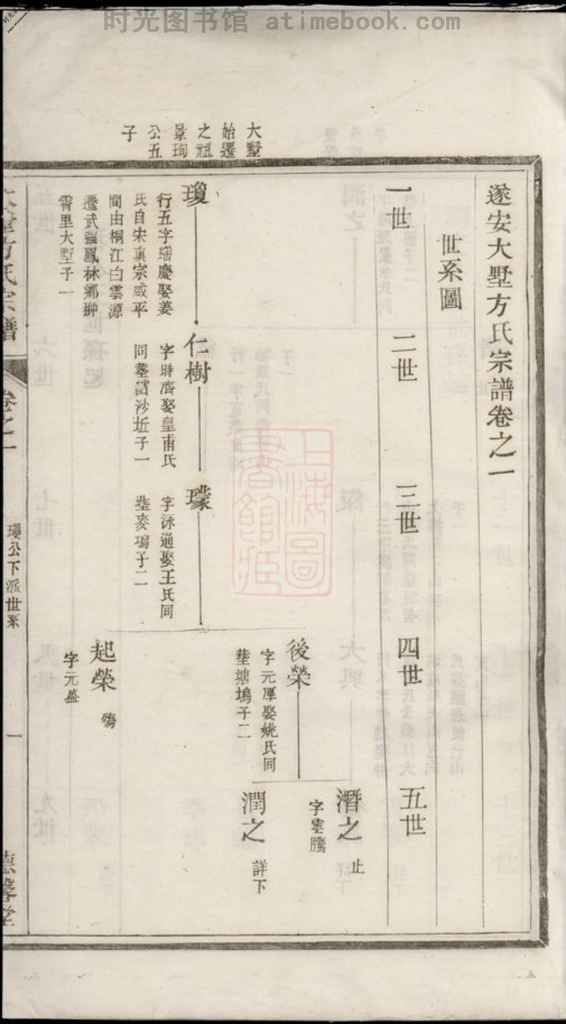 时光图书馆 atimebook.com
大墅
始遷
之祖
景珣
公五
子
遂安大墅方氏宗譜卷之一
世系圖
一世
二世
三世
四世
五世
瓊
行五字瑶慶娶姜
氏自宋真宗咸平
間由桐江白雲源
遷武強鳳林鄉
霄里大墅子一
仁樹
字時濟娶皇甫氏
同葬沙坵子一
璞
字泳通娶王氏同
葬麥塢子二
後榮
字元厚娶姚氏同
葬塘塢子二
起榮
殤
字元盛
潛之
止
字雲騰
潤之
詳下
方氏宗譜
卷之一
瓊公下派世系
一
上海圖書館藏